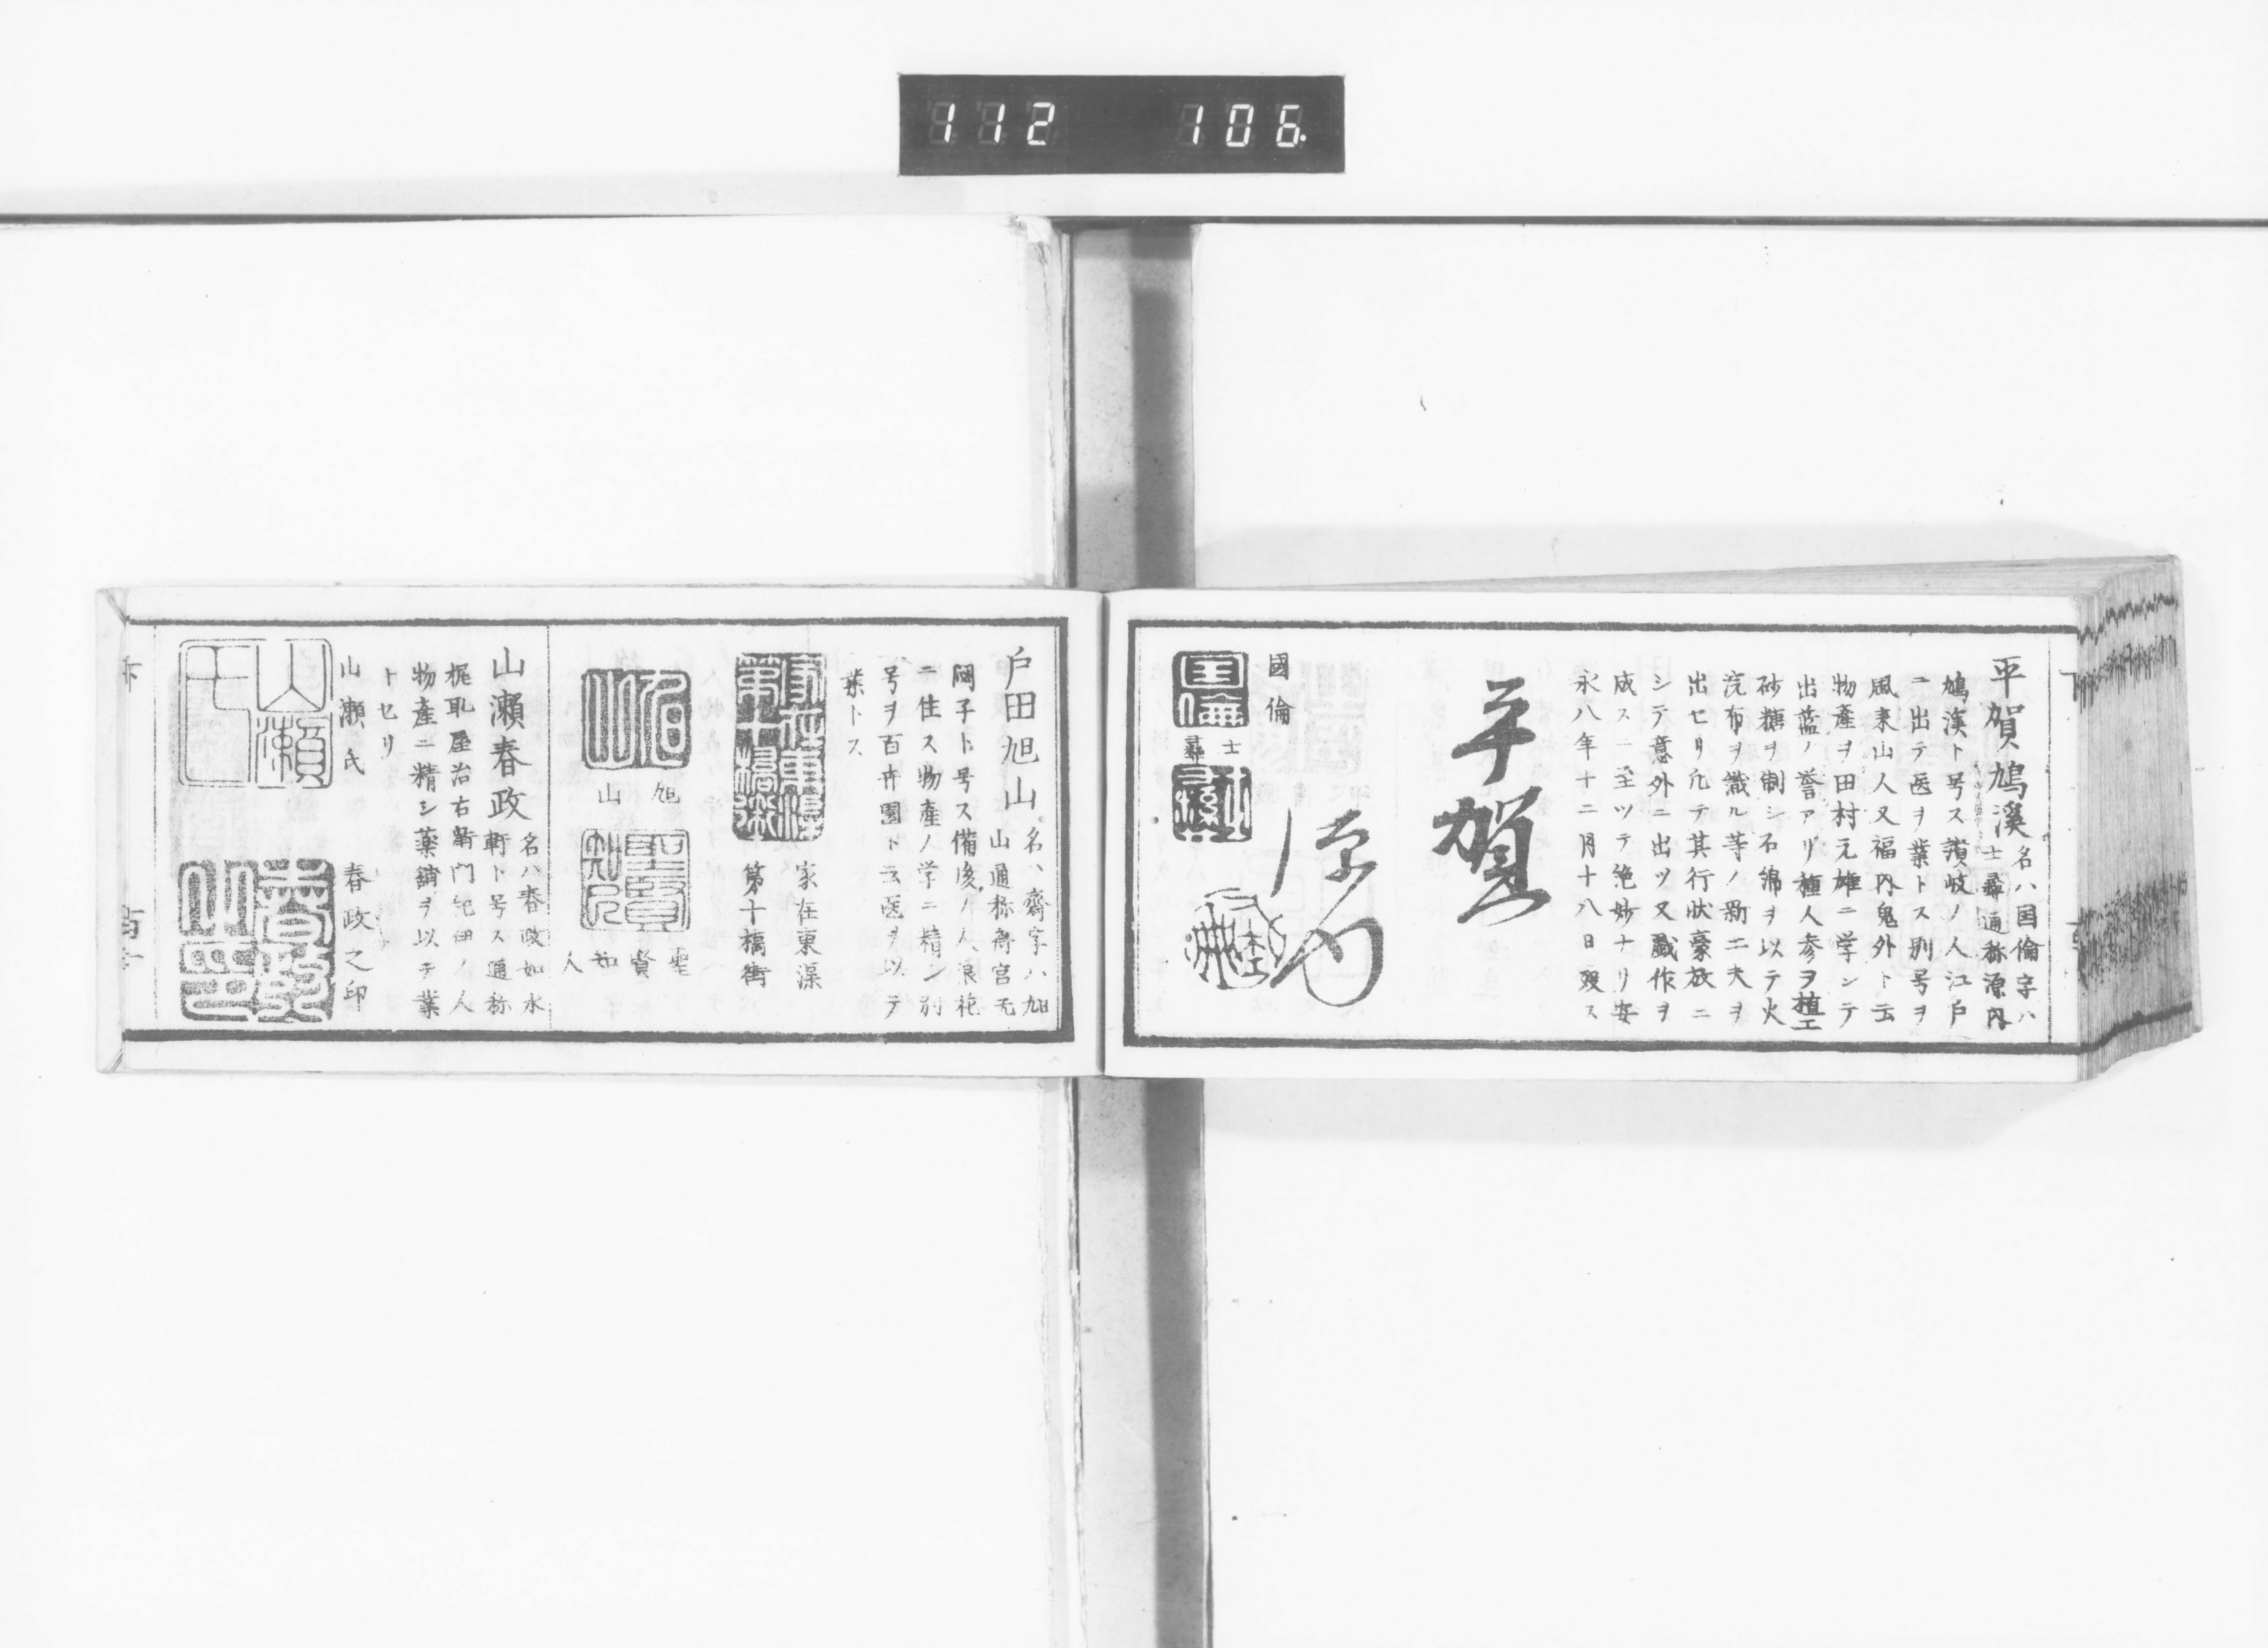 112 106.
平賀鳩溪
名ハ国倫字ハ
士彛通称源内
鳩渓ト号ス讃岐ノ人江戸
ニ出テ医ヲ業トス別号ヲ
風来山人又福内鬼外ト云
物産ヲ田村元雄ニ学ンテ
出藍ノ誉アリ種人参ヲ植エ
砂糖ヲ制シ石綿ヲ以テ火
浣布ヲ織ル等ノ新工夫ヲ
出セリ凡テ其行状豪放ニ
シテ意外ニ出ツ又戯作ヲ
成スニ至ツテ絶妙ナリ安
永八年十二月十八日歿ス
平賀
源内
國倫
士彛
戸田旭山
名ハ齋字ハ旭
山通称斎宮无
悶子ト号ス備後ノ人浪花
ニ住ス物産ノ学ニ精シ別
号ヲ百卉園ト云医ヲ以テ
業トス
家在東澡
第十橋街
旭山
聖賢
知人
山瀬春政
名ハ春政如水
軒ト号ス通称
梶取屋治右衛門紀田ノ人
物産ニ精シ薬舗ヲ以テ業
トセリ
山瀬氏
春政之印